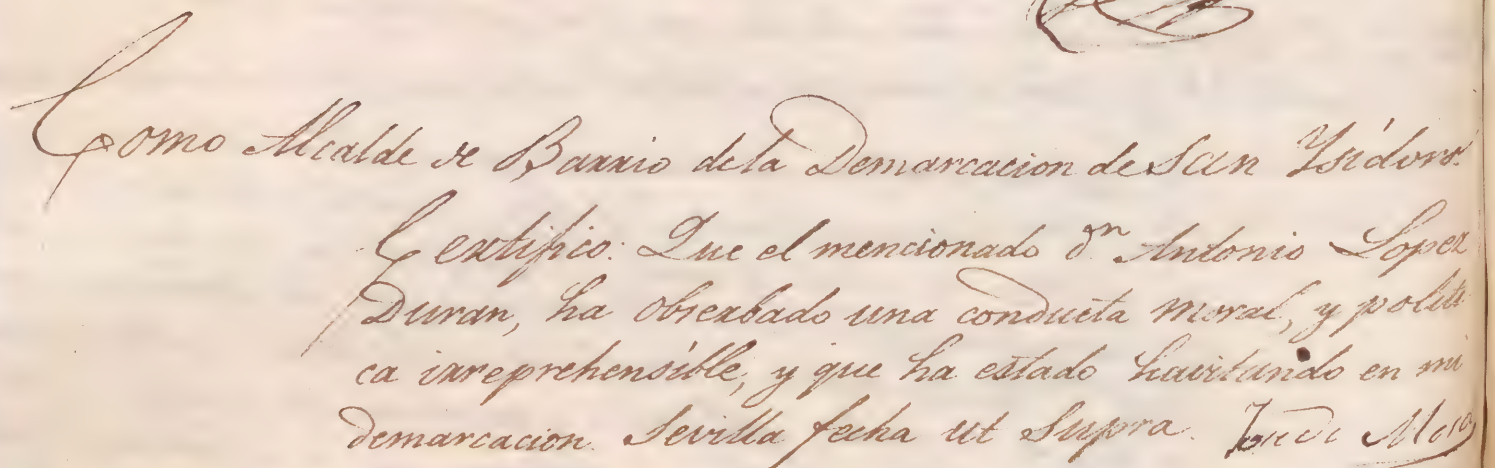 Como Alcalde de Barrio dela Demarcacion de San Ysidoro.
Certifico: Que el mencionado Dn Antonio Lopez
Duran, ha obserbado una conducta moral, y politi
ca irreprehensible, y que ha estado havitando en mi
demarcacion. Sevilla fecha ut Supra.